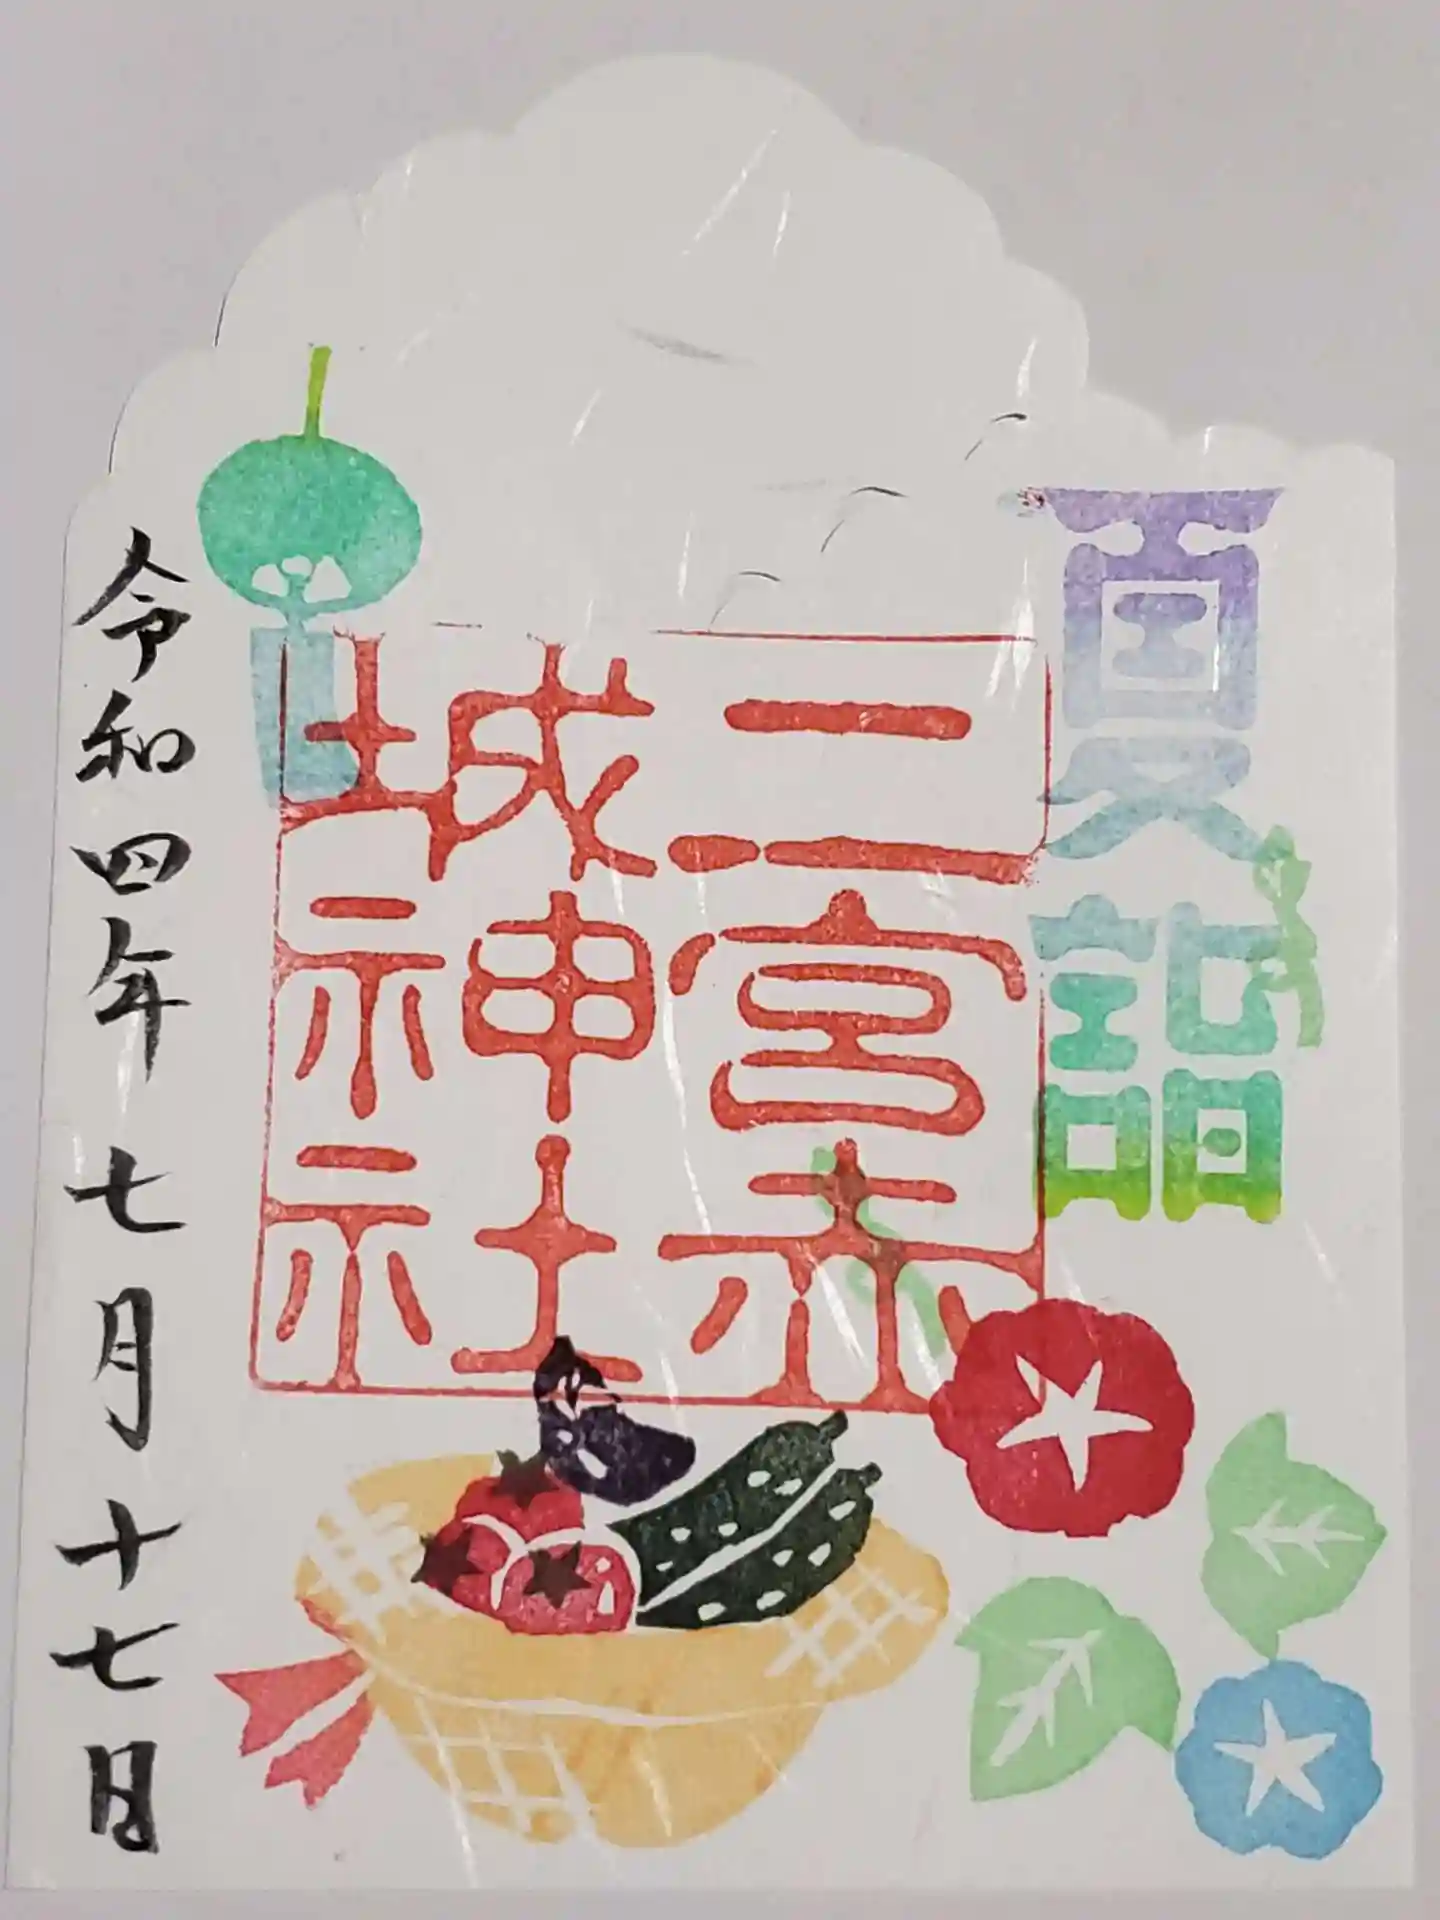 夏詣
二宮赤
城神社
令和四年七月十七日